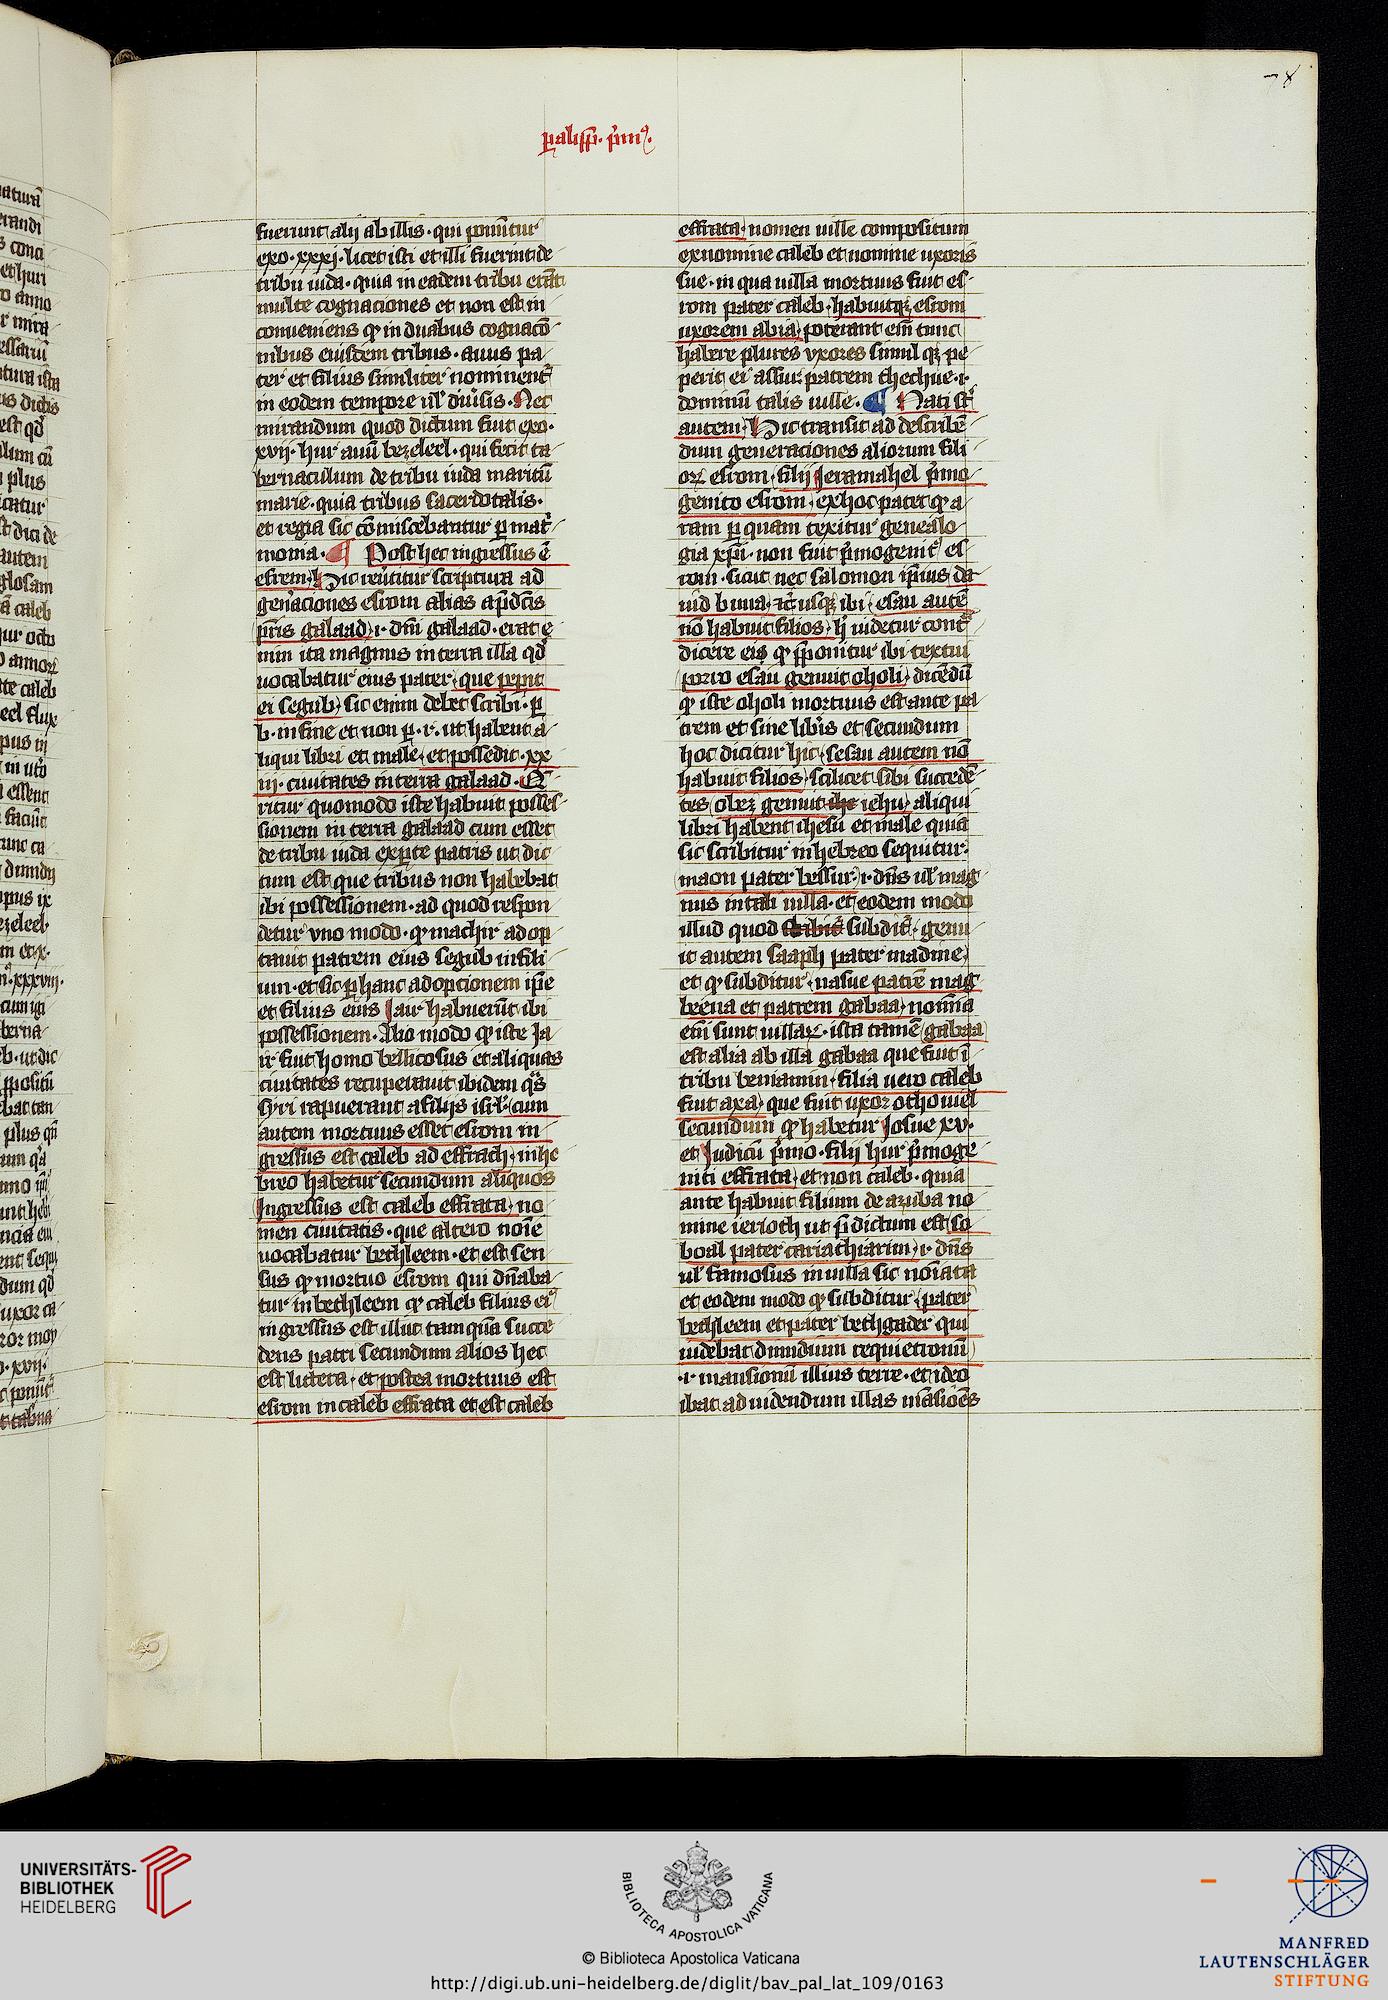 78
ꝑalipp. p̄mꝰ.
fuerunt alij ab illis · qui ponūtur
exo · xxxj · licet isti et illi fuerint de
tribu iuda · quia in eadem tribu erāt
multe cognaciones et non est in
conueniens ꝙ in duabus cognacō
nibus eiusdem tribus · auus pa
ter et filius similiter nominent᷑
in eodem tempore ul' diu̓sis · Nec
mirandum quod dictum fuit exo ·
xvij · hur auū bezeleel · qui fecit ta
bernaculum de tribu iuda maritū
marie · quia tribus sacerdotalis ·
et regia sic cōmiscebantur ꝑ mat̓
monia · ¶ Post hec ingressus ē
esrom / Hic reu̓titur scriptura ad
gen̓aciones esrom alias ap̄dc̄is
pr̄is galaad / i · dn̄i galaad · erat e
nim ita magnus in terra illa qd̓
uocabatur eius pater / que peꝑit
ei segub / sic enim debet scribi · ꝑ
b · in fine et non ꝑ · r · ut habent a
liqui libri et male / et possedit · xx
iij · ciuitates in terra galaad · Q̄
ritur quomodo iste habuit posses
sionem in terra galaad cum esset
de tribu iuda ex ꝑte patris ut dic
tum est que tribus non habebat
ibi possessionem · ad quod respon
detur vno modo · ꝙ machir adop
tauit patrem eius segub in fili
um · et sic ꝑ hanc adopcionem ip̄e
et filius eius Jair habuerūt ibi
possessionem · Alio modo ꝙ iste Ja
ir fuit homo bellicosus et aliquas
ciuitates recuperauit ibidem qᵃs
syri rapuerant a filijs isr̄l · / cum
autem mortuus esset esrom in
gressus est caleb ad effrath / in he
breo habetur secundum aliquos
Ingressus est caleb effrata / no
men ciuitatis · que altero noīe
uocabatur bethleem · et est sen
sus ꝙ mortuo esrom qui dn̄aba
tur in bethleem ꝙ caleb filius eiꝰ
ingressus est illuc tamquā succe
dens patri secundum alios hec
est littera / et postea mortuus est
esrom in caleb effrata et est caleb
effrata / nomen uille compositum
ex nomine caleb et nomine uxoris
sue · in qua uilla mortuus fuit es
rom pater caleb / habuitqꝫ esrom
uxorem abia / poterant em̄ tunc
habere plures vxores simul qꝫ pe
perit ei assur patrem thechue · i ·
dominū talis uille · ¶ Nati st̄
autem / Hic transit ad describē
dum generaciones aliorum fili
oꝝ esrom / filij Jeramahel p̄mo
genito esrom / ex hoc patet ꝙ a
ram ꝑ quam texitur genealo
gia xp̄i · non fuit p̄mogenitꝰ es
rom · sicut nec salomon ip̄ius da
uid buna · ⁊c̄ usqꝫ ibi / esau autē
nō habuit filios / h̓ uidetur cont᷑
dicere eis ꝙ sp̄ponitur ibi textu
porro esau genuit oholi / dicēdū
ꝙ iste oholi mortuus est ante pa
trem et sine lib̓is et secundum
hoc dicitur hic / sesau autem nō
habuit filios / scilicet sibi succedē
tes / obez genuit ihc iehu / aliqui
libri habent ihesu et male quia
sic scribitur in hebreo sequitur ·
maon pater bessur / i · dn̄s ul' mag
nus in tali uilla · et eodem modo
illud quod subdit᷑ / genu
it autem saaph pater madine /
et ꝙ subditur / nasue patrē mag
beena et patrem gabaa / nomīa
em̄ sunt uillaꝝ · ista tamē / gabaa /
est alia ab illa gabaa que fuit ī
tribu beniamin / filia uero caleb
fuit axa / que fuit uxor othoniel
secundum ꝙ habetur Josue xv ·
et Judicū p̄mo · filij hur p̄moge
niti effrata / et non caleb · quia
ante habuit filium de azuba no
mine ierioth ut p̄dictum est so
boal pater cariathiarim / i · dn̄s
ul' famosus in uilla sic noīata
et eodem modo ꝙ subditur / pater
bethleem et pater bethgader qui
uidebat dimidium requietionū /
· i · mansionū illius terre · et ideo
ibat ad uidendum illas māsiōēs
UNIVERSITÄTS-
BIBLIOTHEK
HEIDELBERG
BIBLIOTECA APOSTOLICA VATICANA
© Biblioteca Apostolica Vaticana
http://digi.ub.uni-heidelberg.de/diglit/bav_pal_lat_109/0163
MANFRED
LAUTENSCHLÄGER
STIFTUNG